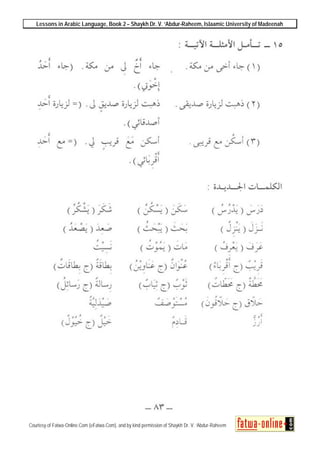 Lessons in Arabic Language, Book 2 – Shaykh Dr. V. ‘Abdur-Raheem, Islaamic University of Madeenah
١٥ ــ تــأمــل الأمثلــة الآتيــة :
(١) جاء أخى من مكة . جاء أَخٌ لِي من مكة . (جاء أَحَدُ إِخْوَتِي).
(٢) ذهبت لزيارة صديقى . ذهبت لزيارة صديقٍ لى . (= لزيارة أَحَدِ أصدقائي).
(٣) أسكُن مع قريبى . أسكن مَعَ قريبٍ لي . (= مع أَحَدِ أَقْرِبَائي).
الكلمــات الجــديــدة :
دَرَسَ (يَدْرُسُ) سَكَنَ (يَسْكُنُ) شَكَرَ (يَشْكُرُ)
نَــزَلَ (يَنْزِلُ) بَحَثَ (يَبْحَثُ) صَعِدَ (يَصْعَدُ)
عَرَفَ (يَعْرِفُ) مَاتَ (يَمُوْتُ) نَسِيْتُ
قَرِيْبٌ (ج أَقْرِبَاءُ) عُنْوَانٌ (ج عَنَاوِيْنُ) بِطَاقَةٌ (ج بِطَاقَاتٌ)
مَحَطَّةٌ (ج مَحَطَّاتٌ) ثَوْبٌ (ج ثِيَابٌ) رِسَالةٌ (ج رَسَائِلُ)
حَلاَّقٌ (ج حَلاَّقُونَ) مُسْتَوْصَفٌ صَيْدَلِيَّةٌ
أَرُزٌّ قَــادِمٌ خَيْلٌ (ج خُيُوْلٌ)
ــ ٨٣ ــ
Courtesy of Fatwa-Online.Com (eFatwa.Com), and by kind permission of Shaykh Dr. V. ‘Abdur-Raheem
fatwa-online.com